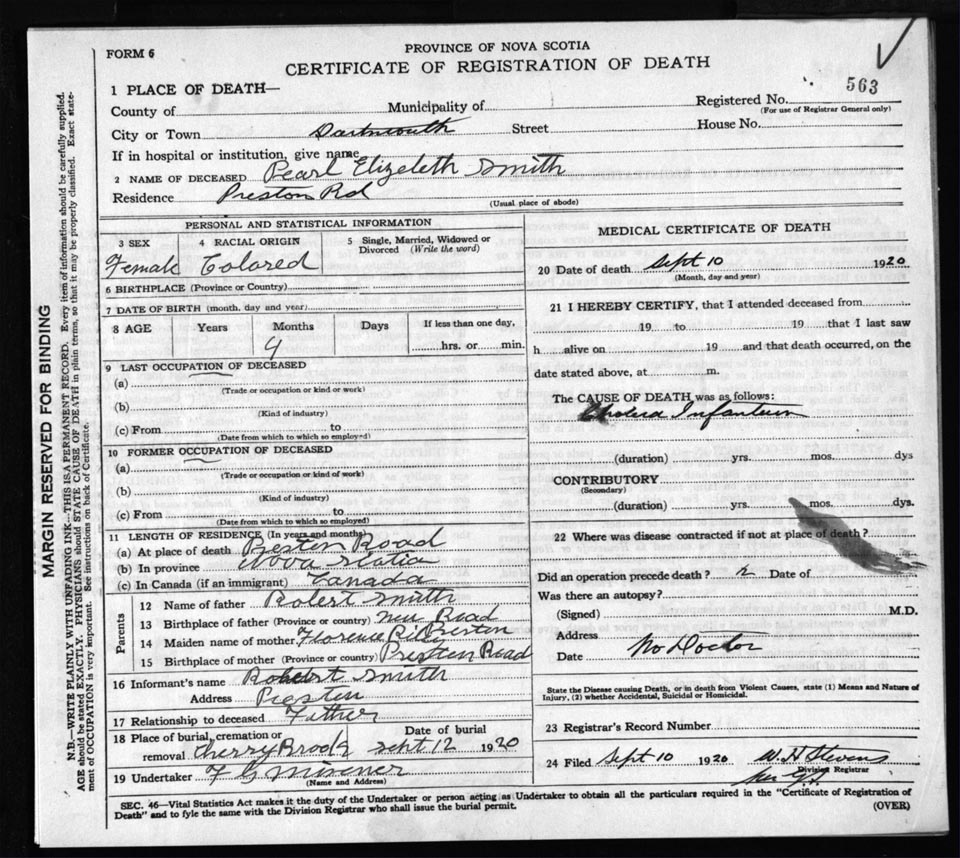 FORM 6
PROVINCE OF NOVA SCOTIA
CERTIFICATE OF REGISTRATION OF DEATH
1 PLACE OF DEATH—
County of Municipality of Registered No. 563
(For use of Registrar General only)
City or Town Dartmouth Street House No.
If in hospital or institution, give name
2 NAME OF DECEASED Pearl Elizebeth Smith
Residence Preston Rd
(Usual place of abode)
PERSONAL AND STATISTICAL INFORMATION
3 SEX 4 RACIAL ORIGIN 5 Single, Married, Widowed or
Divorced (Write the word)
Female Colored
6 BIRTHPLACE (Province or Country)
7 DATE OF BIRTH (month, day and year)
8 AGE Years Months Days If less than one day,
4 hrs. or min.
9 LAST OCCUPATION OF DECEASED
(a)
(Trade or occupation or kind or work)
(b)
(Kind of industry)
(c) From to
(Date from which to which so employed)
10 FORMER OCCUPATION OF DECEASED
(a)
(Trade or occupation or kind of work)
(b)
(Kind of industry)
(c) From to
(Date from which to which so employed)
11 LENGTH OF RESIDENCE (In years and months)
(a) At place of death Preston Road
(b) In province Nova Scotia
(c) In Canada (if an immigrant) Canada
Parents
12 Name of father Robert Smith
13 Birthplace of father (Province or country) New Road
14 Maiden name of mother Florence Preston
15 Birthplace of mother (Province or country) Preston Road
16 Informant's name Robert Smith
Address Preston
17 Relationship to deceased Father
18 Place of burial, cremation or Date of burial
removal Cherry Brook Sept 12 1920
19 Undertaker F G Misener
(Name and Address)
MEDICAL CERTIFICATE OF DEATH
20 Date of death Sept 10 1920
(Month, day and year)
21 I HEREBY CERTIFY, that I attended deceased from
19 to 19 that I last saw
h alive on 19 and that death occurred, on the
date stated above, at m.
The CAUSE OF DEATH was as follows:
Cholera Infantum
(duration) yrs. mos. dys
CONTRIBUTORY
(Secondary)
(duration) yrs. mos. dys.
22 Where was disease contracted if not at place of death?
Did an operation precede death? Date of
Was there an autopsy?
(Signed) M.D.
Address
Date No Doctor
State the Disease causing Death, or in death from Violent Causes, state (1) Means and Nature of
Injury, (2) whether Accidental, Suicidal or Homicidal.
23 Registrar's Record Number
24 Filed Sept 10 1920 W. H. Stevens
Division Registrar
SEC. 46—Vital Statistics Act makes it the duty of the Undertaker or person acting as Undertaker to obtain all the particulars required in the "Certificate of Registration of
Death" and to fyle the same with the Division Registrar who shall issue the burial permit.
(OVER)
MARGIN RESERVED FOR BINDING
N.B.—WRITE PLAINLY WITH UNFADING INK—THIS IS A PERMANENT RECORD. Every item of information should be carefully supplied.
AGE should be stated EXACTLY. PHYSICIANS should STATE CAUSE OF DEATH in plain terms, so that it may be properly classified. Exact state-
ment of OCCUPATION is very important. See instructions on back of Certificate.